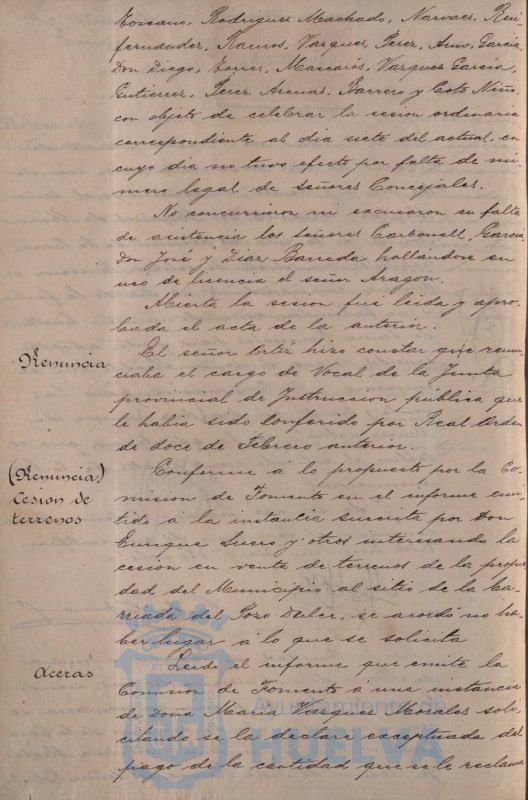 Toscano, Rodriguez Machado, Narvaez, Rui-
fernandez, Ramos, Vazquez Perez, Amo, Garcia,
Don Diego, Torres, Mascarós, Vazquez Garcia,
Gutierrez, Perez Arenas, Barrero y Coto Niño,
con objeto de celebrar la sesion ordinaria
correspondiente al dia siete del actual, en
cuyo dia no tuvo efecto por falta de nú-
mero legal de señores Concejales.
No concurrieron ni excusaron su falta
de asistencia los señores Carbonell, Garcia
Don José y Diaz Barreda hallandose en
uso de licencia el señor Aragon.
Abierta la sesion fué leida y apro-
bada el acta de la anterior.
Renuncia
El señor Ortiz hizo constar que renun-
ciaba el cargo de Vocal de la Junta
provincial de Instruccion pública que
le habia sido conferido por Real Orden
de doce de Febrero anterior.
(Renuncia)
Cesion de
terrenos
Conforme á lo propuesto por la Co-
mision de Fomento en el informe emi-
tido á la instancia suscrita por Don
Enrique Suero y otros interesando la
cesion en venta de terrenos de la propie-
dad del Municipio al sitio de la ba-
rriada del Pozo Dulce, se acordó no ha-
ber lugar á lo que se solicita
Aceras
Leido el informe que emite la
Comision de Fomento á una instancia
de Doña Maria Vazquez Morales soli-
citando se la declare exceptuada del
pago de la cantidad que se le reclama
Ayuntamiento de
HUELVA